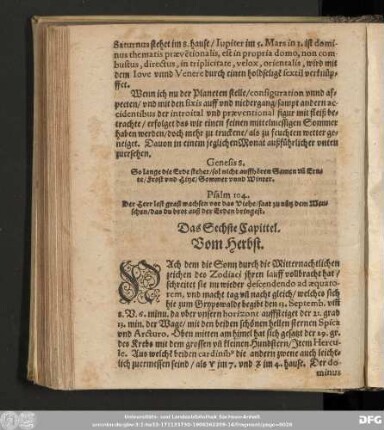 Saturnus stehet im 8. hause/ Iupiter im 5. Mars in 1. ist domi-
nus thematis prævẽtionalis, est in propria domo, non com-
bustus, directus, in triplicitate, velox, orientalis, wird mit
dem Iove vnnd Venere durch einen holdselige sextil verknüp-
ffet.
Wenn ich nu der Planeten stelle/ configuration vnnd as-
pecten/ vnd mit den fixis auff vnd niedergang/ sampt andern ac-
cidentibus der introital vnd præventional figur mit fleiß be-
trachte/ erfolget das wir einen feinen mittelmessigen Sommer
haben werden/ doch mehr zu truckene/ als zu feuchten wetter ge-
neiget. Dauon in einem jeglichen Monat außführlicher vnten
zuersehen.
Genesis 8.
So lange die Erde stehet/ sol nicht auffhören Samen vñ Ern-
te/ Frost vnd Hitz/ Sommer vnnd Winter.
Psalm 104.
Der Herr lest graß wachsen vor das Viehe/ saat zu nutz dem Men-
schen/ das du brot auß der Erden bringest.
Das Sechste Capittel.
Vom Herbst.
NAch dem die Sonn durch die Mitternachtlichen
zeichen des Zodiaci jhren lauff vollbracht hat/
schreitet sie nu wieder descendendo ad æquato-
rem, vnd macht tag vñ nacht gleich/ welches sich
hie zum Grypswalde begibt den 13. Septemb. vmb
8. V. 6. minu. da vber vnsern horizont auffsteiget der 21. grad
13. min. der Wage/ mit den beiden schönen hellen sternen Spica
vnd Arcturo. Oben mitten am himel hat sich gesatzt der 29. gr.
des Krebs mit dem grossen vñ kleinen Hundstern/ Item Hercu-
le. Aus welchẽ beiden cardinib⁹ die andern zweene auch leicht-
lich zuermessen seind/ als ♈ im 7. vnd ♑ im 4. hause. Der do-
minus
Universitäts- und Landesbibliothek Sachsen-Anhalt
DFG